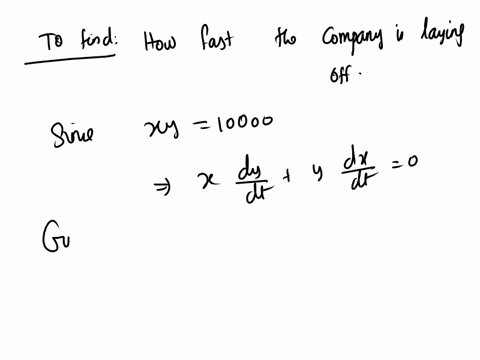 To find: How fast the Company is laying
off.
Since xy = 10000
⇒ x dy/dt + y dx/dt = 0
Gu